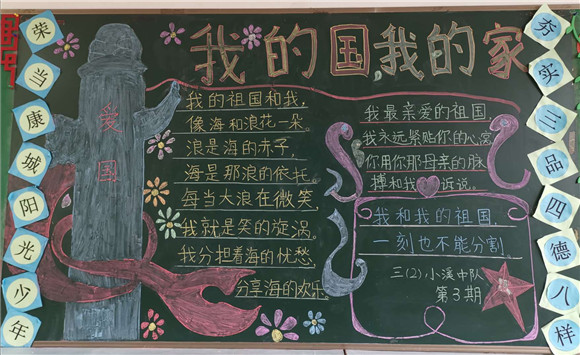 我的国,我的家
荣当康城阳光少年
爱国
我的祖国和我,
像海和浪花一朵。
浪是海的赤子,
海是那浪的依托。
每当大浪在微笑,
我就是笑的旋涡。
我分担着海的忧愁,
分享海的欢乐。
我最亲爱的祖国
我永远紧贴你的心窝
你用你那母亲的脉
搏和我诉说。
我和我的祖国,
一刻也不能分割。
三(2)小溪中队
第3期
夯实三品四德八样